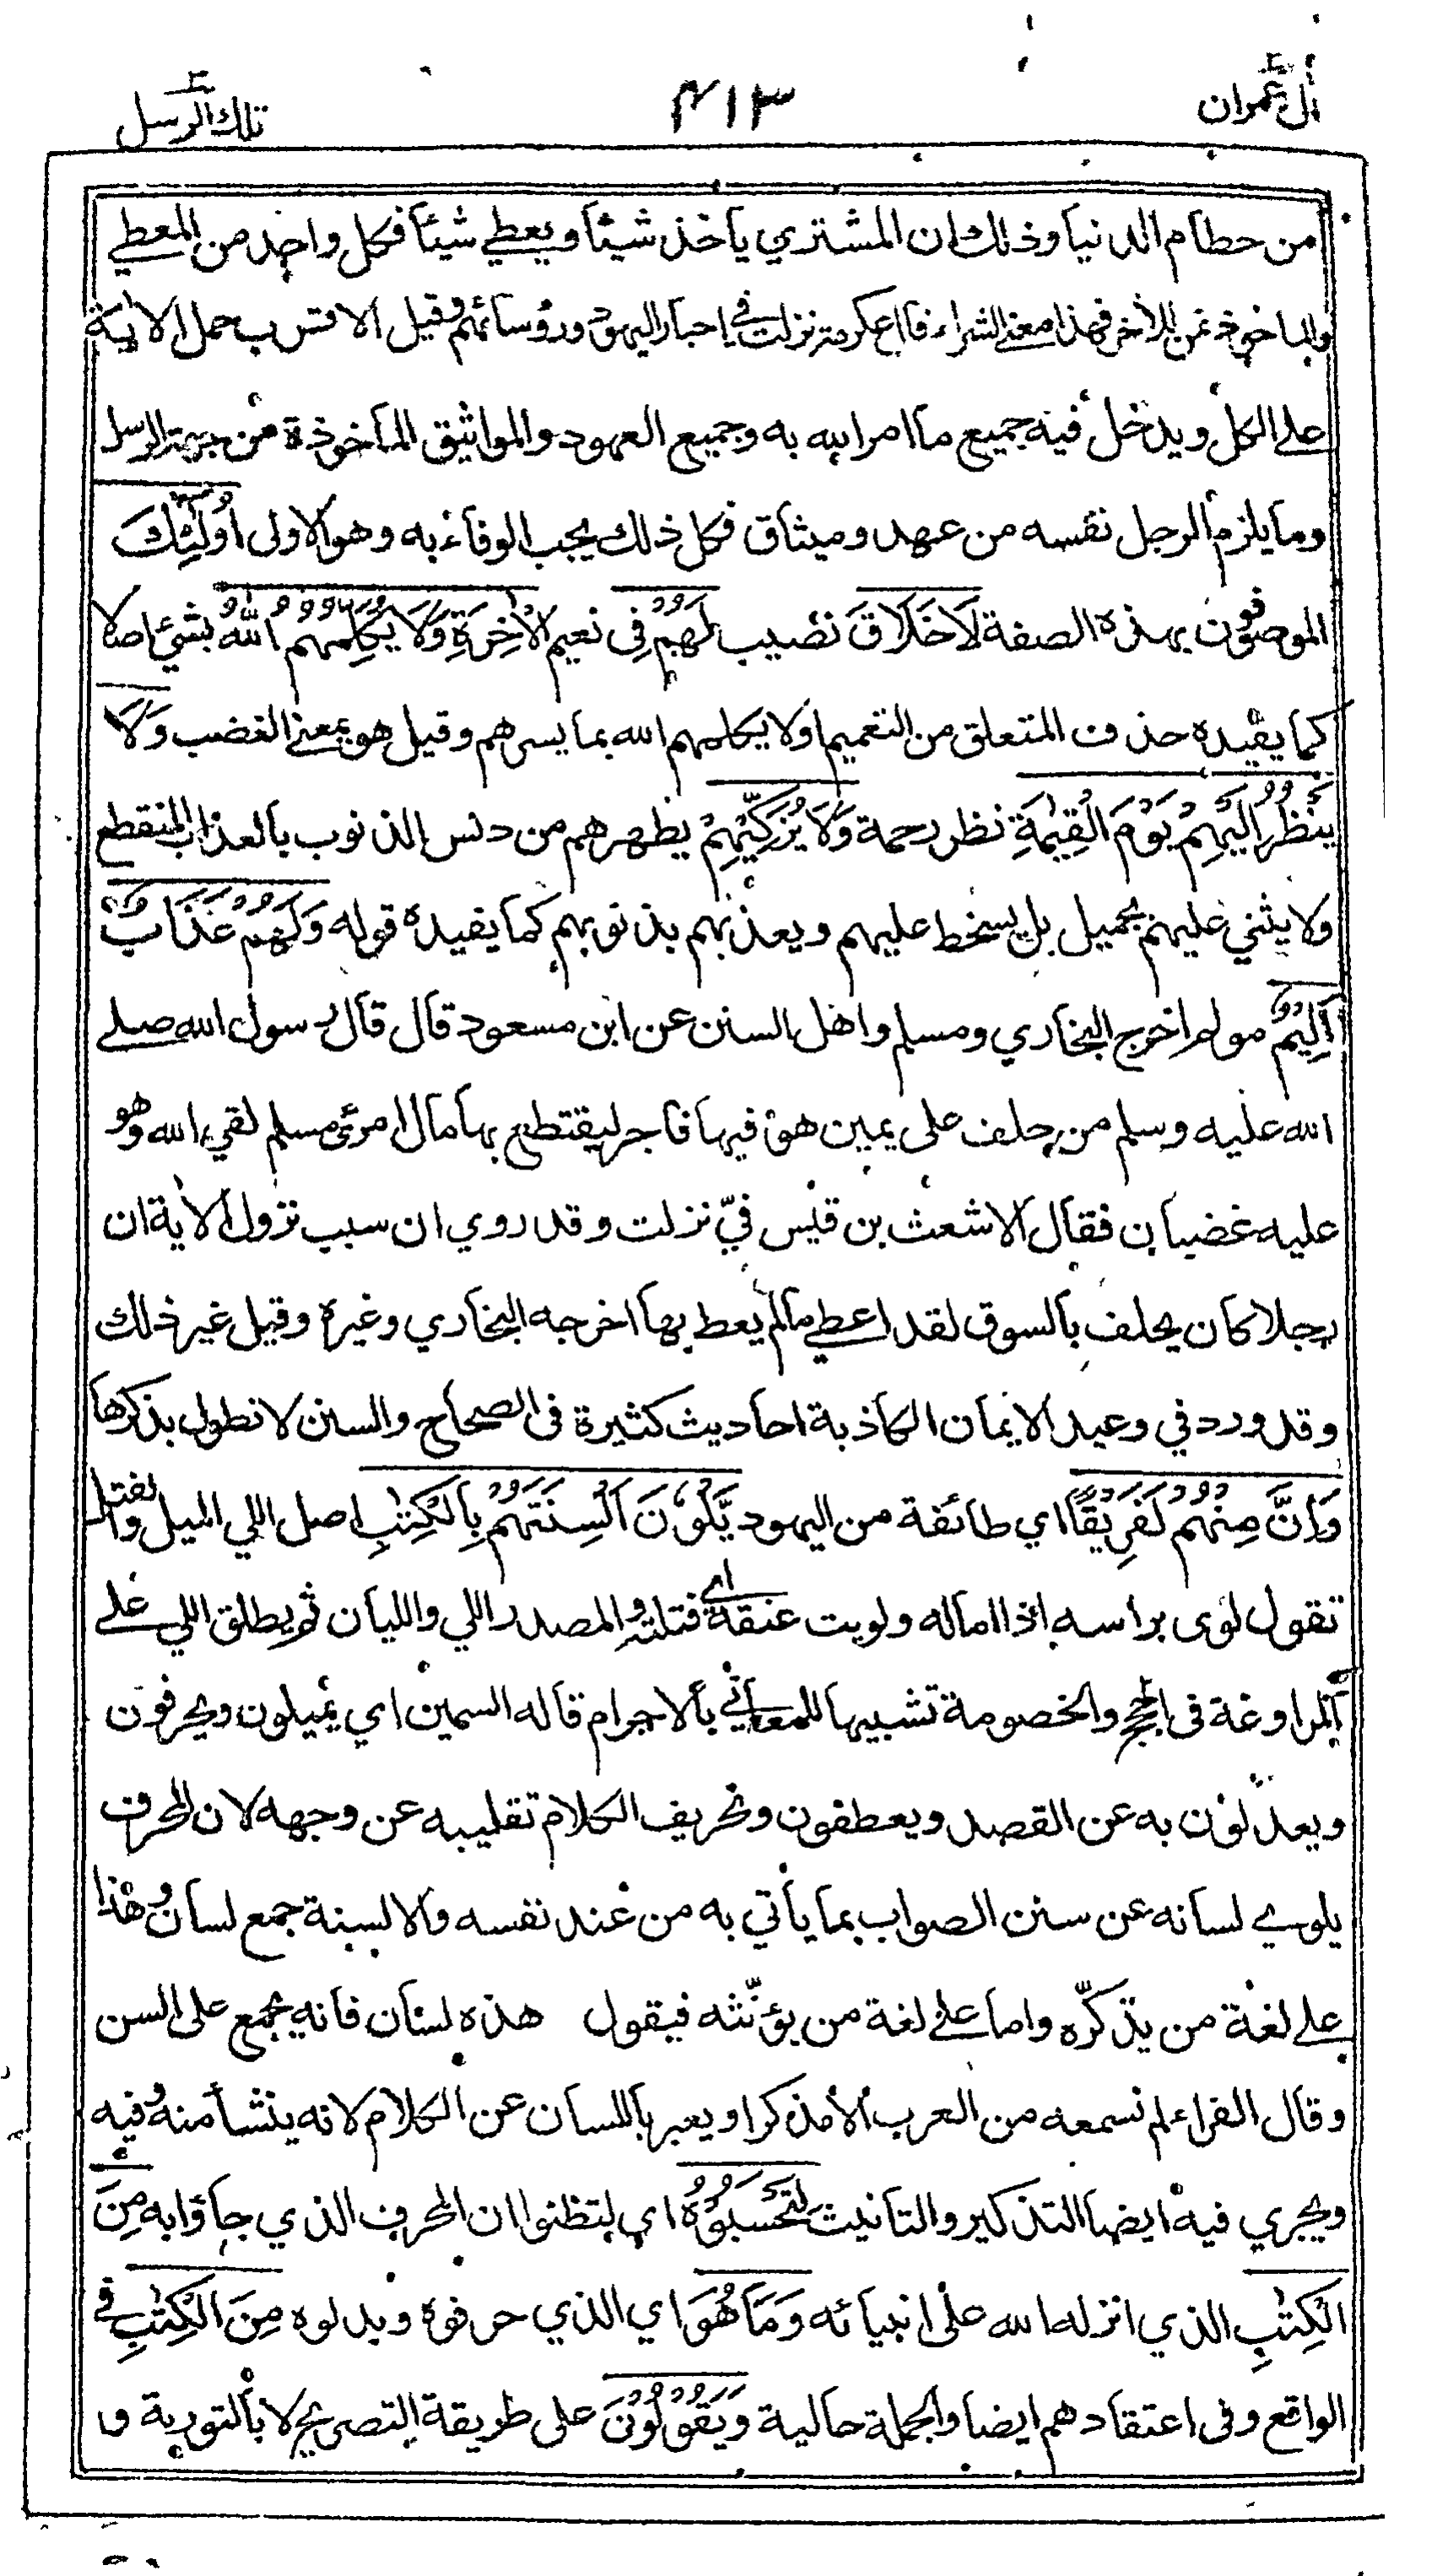 آل عمران
٤١٣
تلك الرسل
من حطام الدنيا وذلك ان المشتري يأخذ شيئا ويعطي شيئا فكل واحد من المعطي
والمأخوذ ثمن للآخر فهذا معنى الشراء قال عكرمة نزلت في احبار اليهود ورؤسائهم وقيل الاقرب حمل الاية
على الكل ويدخل فيه جميع ما امر الله به وجميع العهود والمواثيق المأخوذة من جهة الرسل
وما يلزم الرجل نفسه من عهد وميثاق فكل ذلك يجب الوفاء به وهو الاولى أُولَٰئِكَ
الموصوفون بهذه الصفة لَا خَلَاقَ نصيب لَهُمْ فِي نعيم الْآخِرَةِ وَلَا يُكَلِّمُهُمُ اللَّهُ بشيء اصلا
كما يفيده حذف المتعلق من التعميم او لا يكلمهم الله بما يسرهم وقيل هو بمعنى الغضب وَلَا
يَنْظُرُ إِلَيْهِمْ يَوْمَ الْقِيٰمَةِ نظر رحمة وَلَا يُزَكِّيهِمْ يطهرهم من دنس الذنوب بالعذاب المنقطع
ولا يثني عليهم بجميل بل يسخط عليهم ويعذبهم بذنوبهم كما يفيده قوله وَلَهُمْ عَذَابٌ
أَلِيمٌ مولم اخرج البخاري ومسلم واهل السنن عن ابن مسعود قال قال رسول الله صلى
الله عليه وسلم من حلف على يمين هو فيها فاجر ليقتطع بها مال امرئ مسلم لقي الله وهو
عليه غضبان فقال الاشعث بن قيس فيّ نزلت وقد روي ان سبب نزول الاية ان
رجلا كان يحلف بالسوق لقد اعطي ما لم يعط بها اخرجه البخاري وغيره وقيل غير ذلك
وقد ورد في وعيد الايمان الكاذبة احاديث كثيرة في الصحاح والسنن لا نطول بذكرها
وَإِنَّ مِنْهُمْ لَفَرِيقًا اي طائفة من اليهود يَّلْوُونَ أَلْسِنَتَهُمْ بِالْكِتٰبِ اصل اللي الميل والفتل
تقول لوى براسه اذا اماله ولويت عنقه اي فتلته والمصدر اللي والليان ثم يطلق اللي على
المراوغة في الحجج والخصومة تشبيها للمعاني بالاجرام قاله السمين اي يميلون ويحرفون
ويعدلون به عن القصد ويعطفون وتحريف الكلام تقليبه عن وجهه لان المحرف
يلوي لسانه عن سنن الصواب بما يأتي به من عند نفسه والالسنة جمع لسان وهذا
على لغة من يذكره واما على لغة من يؤنثه فيقول هذه لسان فانه يجمع على السن
وقال الفراء لم نسمعه من العرب الا مذكرا ويعبر باللسان عن الكلام لانه ينشأ منه وفيه
ويجري فيه ايضا التذكير والتانيث لِتَحْسَبُوهُ اي لتظنوا ان المحرف الذي جاؤا به مِنَ
الْكِتٰبِ الذي انزله الله على انبيائه وَمَا هُوَ اي الذي حرفوه وبدلوه مِنَ الْكِتٰبِ في
الواقع وفي اعتقادهم ايضا والجملة حالية وَيَقُولُونَ على طريقة التصريح لا بالتورية و